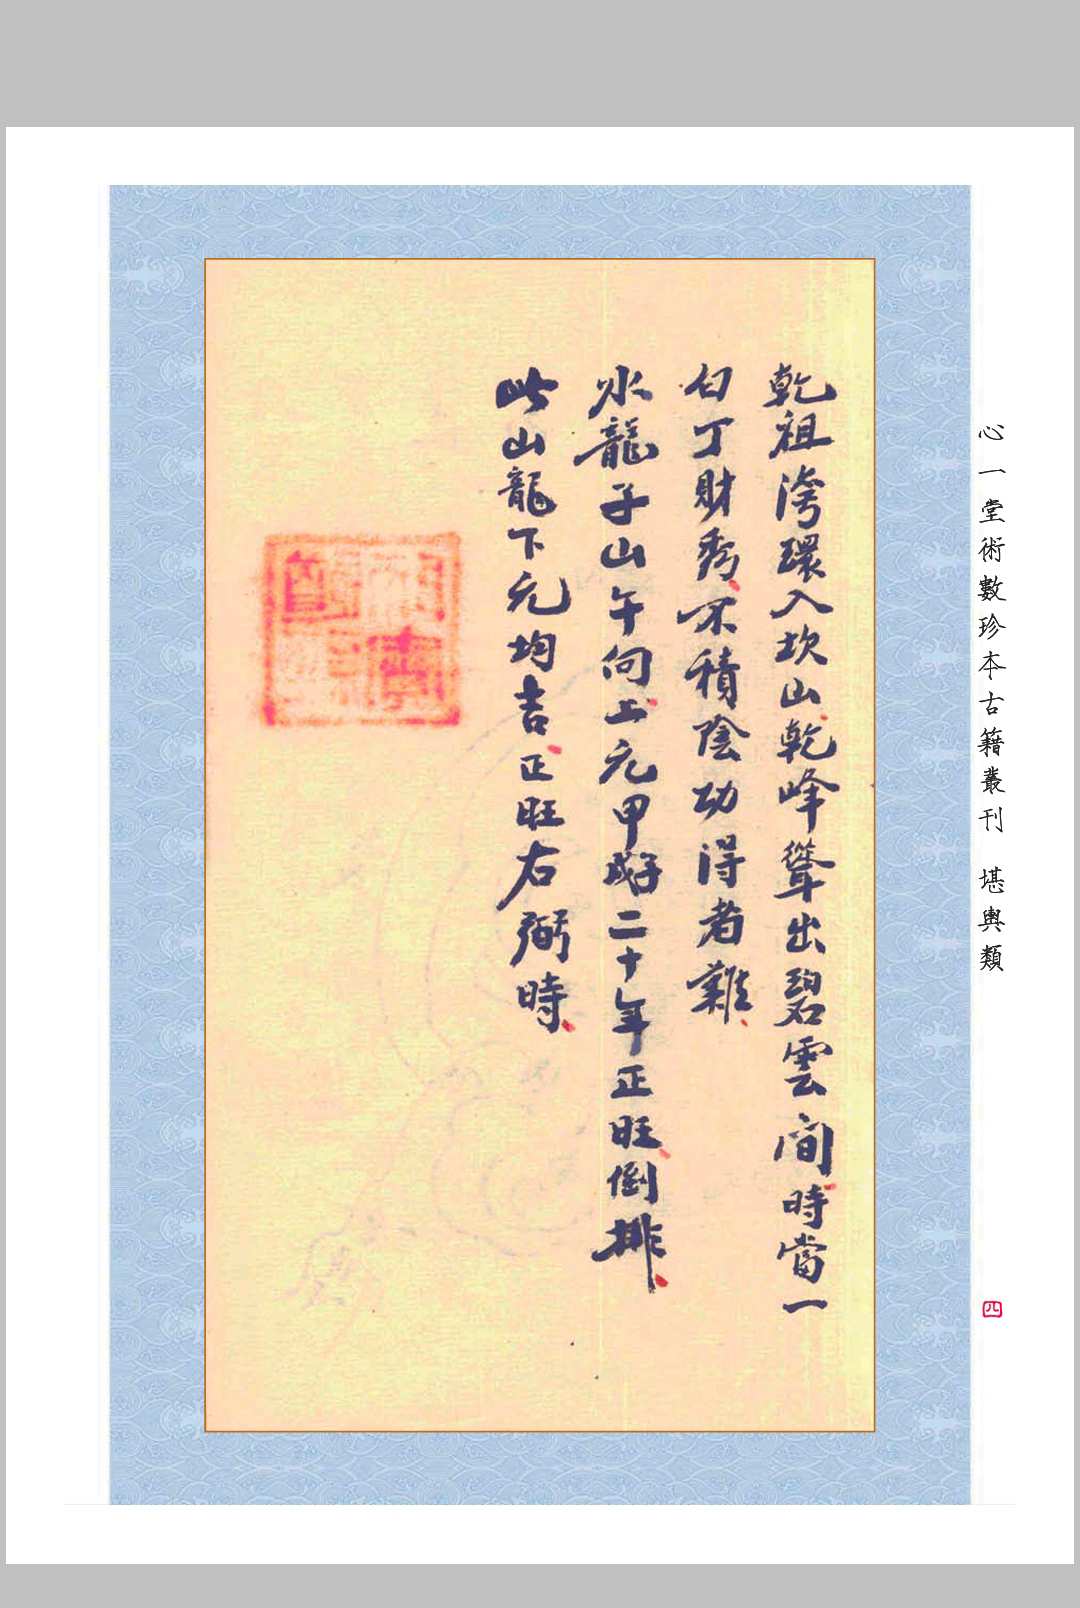 乾祖灣環入坎山乾峰聳出碧雲間時當一
白丁財秀不積陰功得者難
水龍子山午向上元甲子二十年正旺倒排
此山龍下元均吉正旺右弼時
心一堂術數珍本古籍叢刊 堪輿類
四